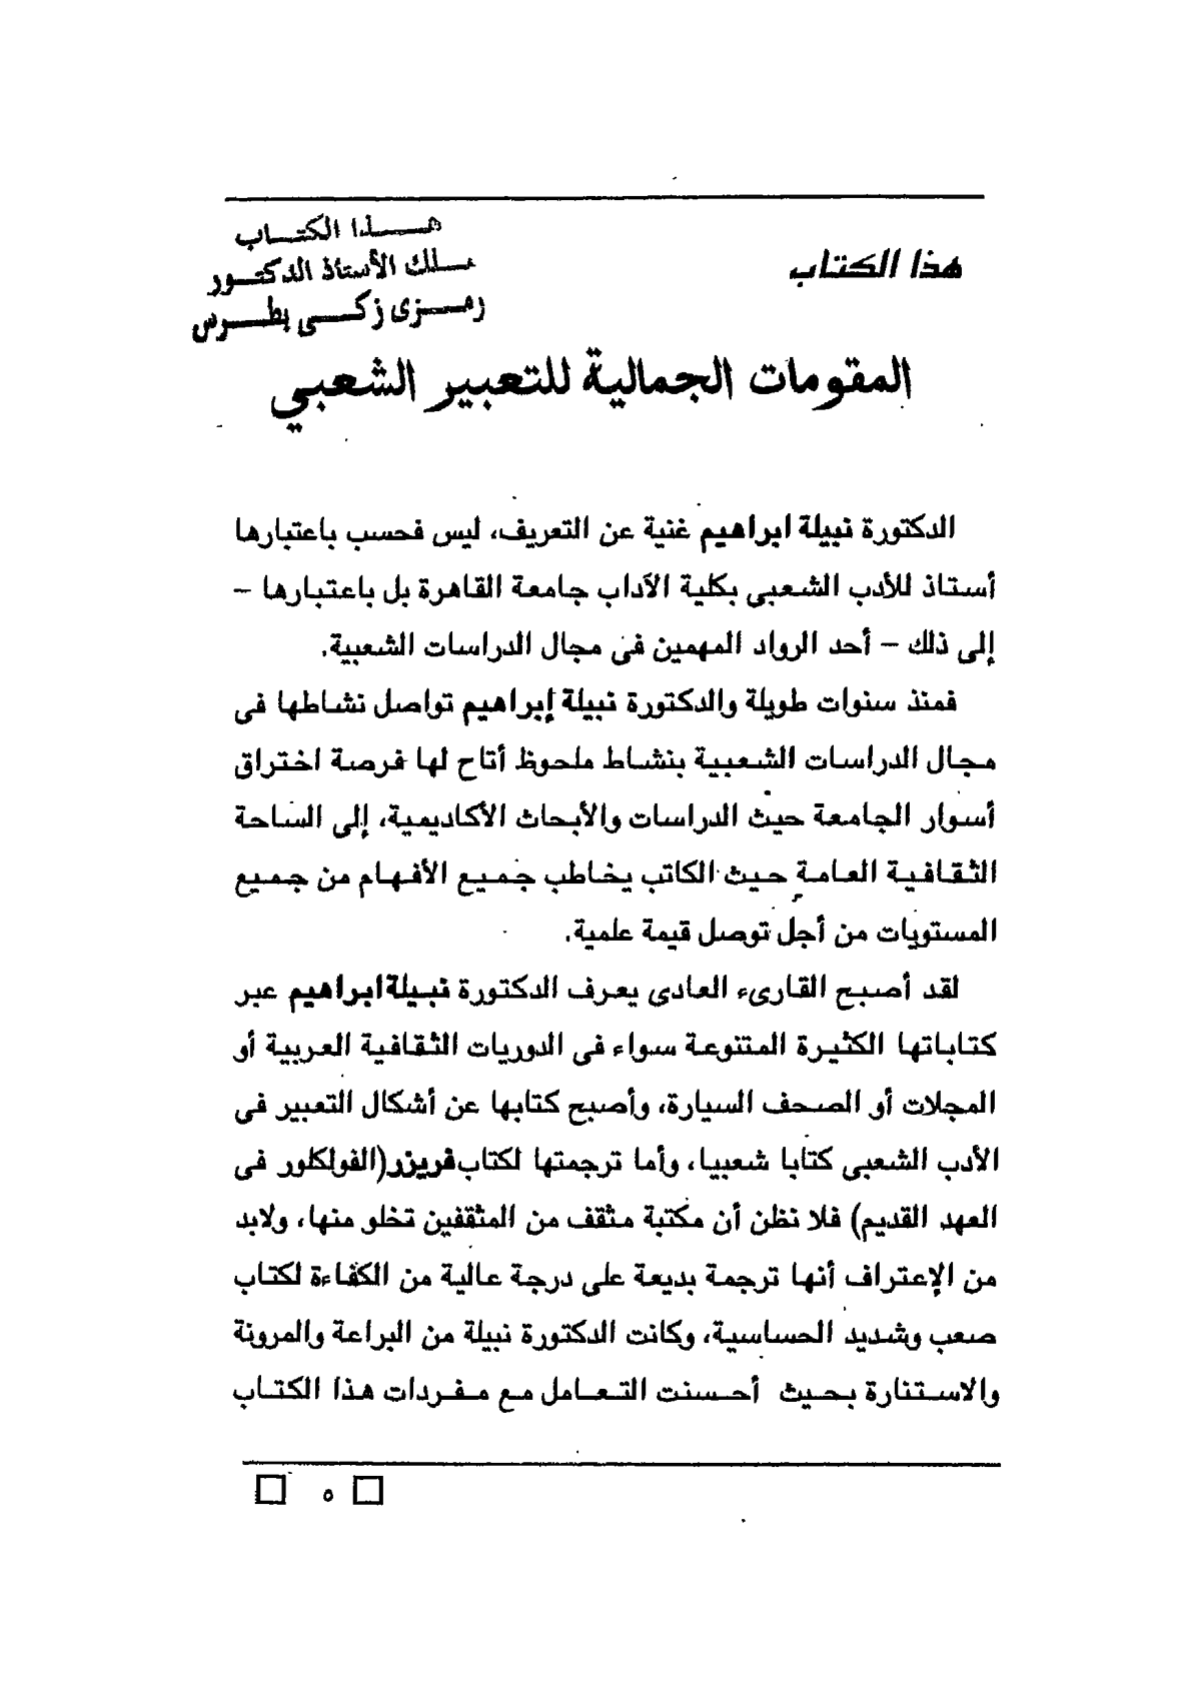 هذا الكتاب
هــذا الكتــاب
ملك الأستاذ الدكتــور
رمــزى زكــى بطــرس
المقومات الجمالية للتعبير الشعبي
الدكتورة نبيلة ابراهيم غنية عن التعريف، ليس فحسب باعتبارها
أستاذ للأدب الشعبى بكلية الآداب جامعة القاهرة بل باعتبارها –
إلى ذلك – أحد الرواد المهمين فى مجال الدراسات الشعبية.
فمنذ سنوات طويلة والدكتورة نبيلة إبراهيم تواصل نشاطها فى
مجال الدراسات الشعبية بنشاط ملحوظ أتاح لها فرصة اختراق
أسوار الجامعة حيث الدراسات والأبحاث الأكاديمية، إلى الساحة
الثقافية العامة حيث الكاتب يخاطب جميع الأفهام من جميع
المستويات من أجل توصل قيمة علمية.
لقد أصبح القارىء العادى يعرف الدكتورة نبيلة ابراهيم عبر
كتاباتها الكثيرة المتنوعة سواء فى الدوريات الثقافية العربية أو
المجلات أو الصحف السيارة، وأصبح كتابها عن أشكال التعبير فى
الأدب الشعبى كتابا شعبيا، وأما ترجمتها لكتاب فريزر (الفولكلور فى
العهد القديم) فلا نظن أن مكتبة مثقف من المثقفين تخلو منها، ولابد
من الإعتراف أنها ترجمة بديعة على درجة عالية من الكفاءة لكتاب
صعب وشديد الحساسية، وكانت الدكتورة نبيلة من البراعة والمرونة
والاستنارة بحيث أحسنت التعامل مع مفردات هذا الكتاب
٥